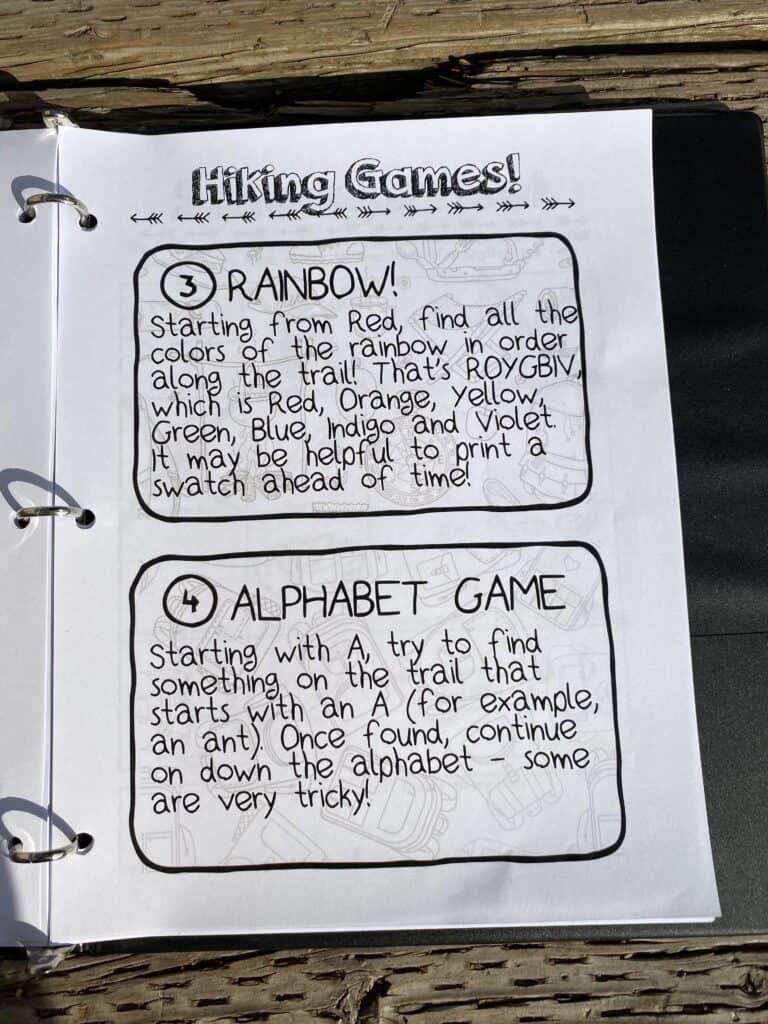 Hiking Games!
3 RAINBOW!
Starting from Red, find all the
colors of the rainbow in order
along the trail! That's ROYGBIV,
which is Red, Orange, Yellow,
Green, Blue, Indigo and Violet.
It may be helpful to print a
swatch ahead of time!
4 ALPHABET GAME
Starting with A, try to find
something on the trail that
starts with an A (for example,
an ant). Once found, continue
on down the alphabet - some
are very tricky!